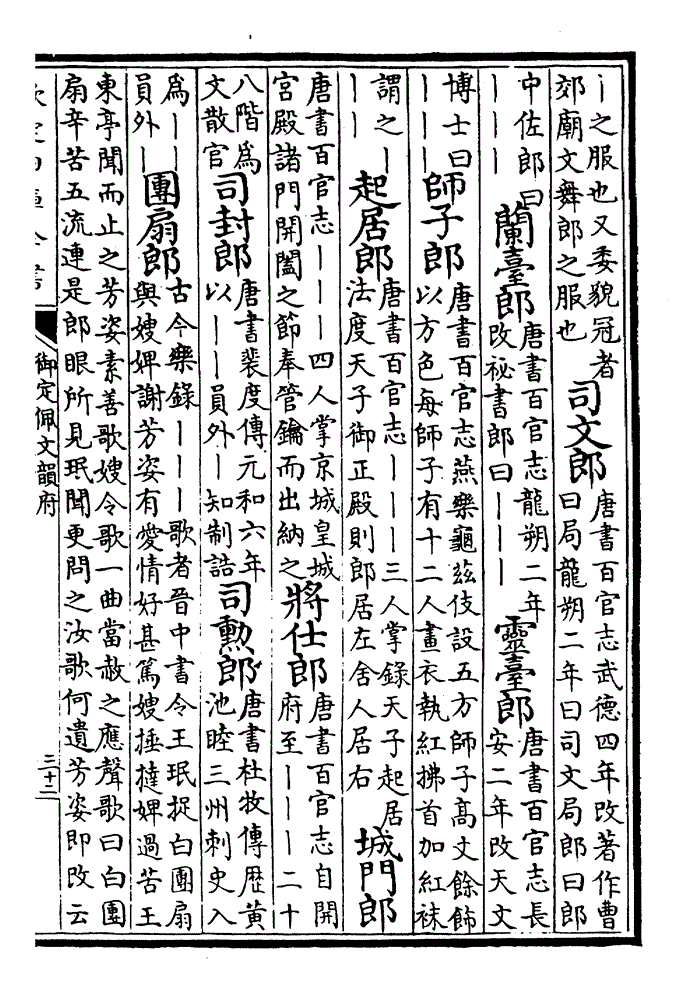 丨之服也又委貌冠者
郊廟文舞郎之服也
司文郎
唐書百官志武德四年改著作曹
曰局龍朔二年曰司文局郎曰郎
中佐郎曰
丨丨丨
蘭臺郎
唐書百官志龍朔二年
改祕書郎曰丨丨丨
靈臺郎
唐書百官志長
安二年改天文
博士曰
丨丨丨
師子郎
唐書百官志燕樂龜茲伎設五方師子高丈餘飾
以方色每師子有十二人畫衣執紅拂首加紅袜
謂之丨
丨丨
起居郎
唐書百官志丨丨丨三人掌錄天子起居
法度天子御正殿則郎居左舍人居右
城門郎
唐書百官志丨丨丨四人掌京城皇城
宮殿諸門開闔之節奉管鑰而出納之
將仕郎
唐書百官志自開
府至丨丨丨二十
八階爲
文散官
司封郎
唐書裴度傳元和六年
以丨丨員外丨知制誥
司勲郎
唐書杜牧傳歴黄
池睦三州刺史入
爲丨丨
員外丨
團扇郎
古今樂錄丨丨丨歌者晉中書令王珉捉白團扇
與嫂婢謝芳姿有愛情好甚篤嫂捶撻婢過苦王
東亭聞而止之芳姿素善歌嫂令歌一曲當赦之應聲歌曰白團
扇辛苦五流連是郎眼所見珉聞更問之汝歌何遺芳姿即改云
欽定四庫全書
御定佩文韻府
三十二